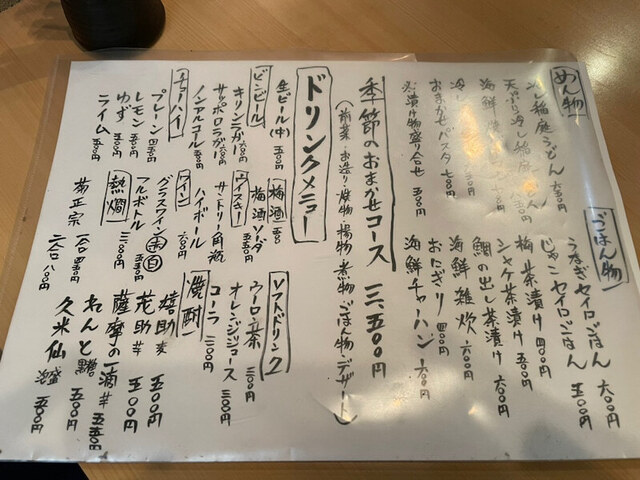 めん物
冷し稲庭うどん 六五〇円
天ぷら冷し稲庭
海鮮
冷し
おまかせパスタ 七八〇円
お漬け物盛り合せ 五〇〇円
ごはん物
うなぎセイロごはん 六〇〇円
じゃこセイロごはん 五〇〇円
梅茶漬け 四〇〇円
シャケ茶漬け 五〇〇円
鯛の出し茶漬け 六〇〇円
海鮮雑炊 六〇〇円
おにぎり 四〇〇円
海鮮チャーハン 六〇〇円
季節のおまかせコース 三、五〇〇円
(前菜・お造り・焼物・揚物・煮物・ごはん物・デザート)
ドリンクメニュー
生ビール(中) 五〇〇円
ビンビール
キリンラガー 六〇〇円
サッポロラガー 六〇〇円
ノンアルコール 五〇〇円
チューハイ
プレーン 四五〇円
レモン 五〇〇円
ゆず 五〇〇円
ライム 五〇〇円
梅酒
梅酒ソーダ
ウイスキー
サントリー角瓶
ハイボール 六〇〇円
ワイン
グラスワイン 赤 白 五五〇円
フルボトル 三、二〇〇円
熱燗
菊正宗 一合 四五〇円
二合 八〇〇円
ソフトドリンク
ウーロン茶 三〇〇円
オレンジジュース 三〇〇円
コーラ 三〇〇円
焼酎
嬉助 麦 五〇〇円
花助 芋 五〇〇円
薩摩の一滴 芋 五五〇円
れんと 黒糖 五〇〇円
久米仙 泡盛 五〇〇円